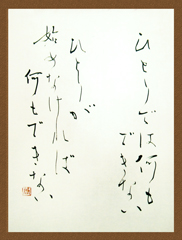 ひとりでは何も
できない
ひとりが
始めなければ
何もできない